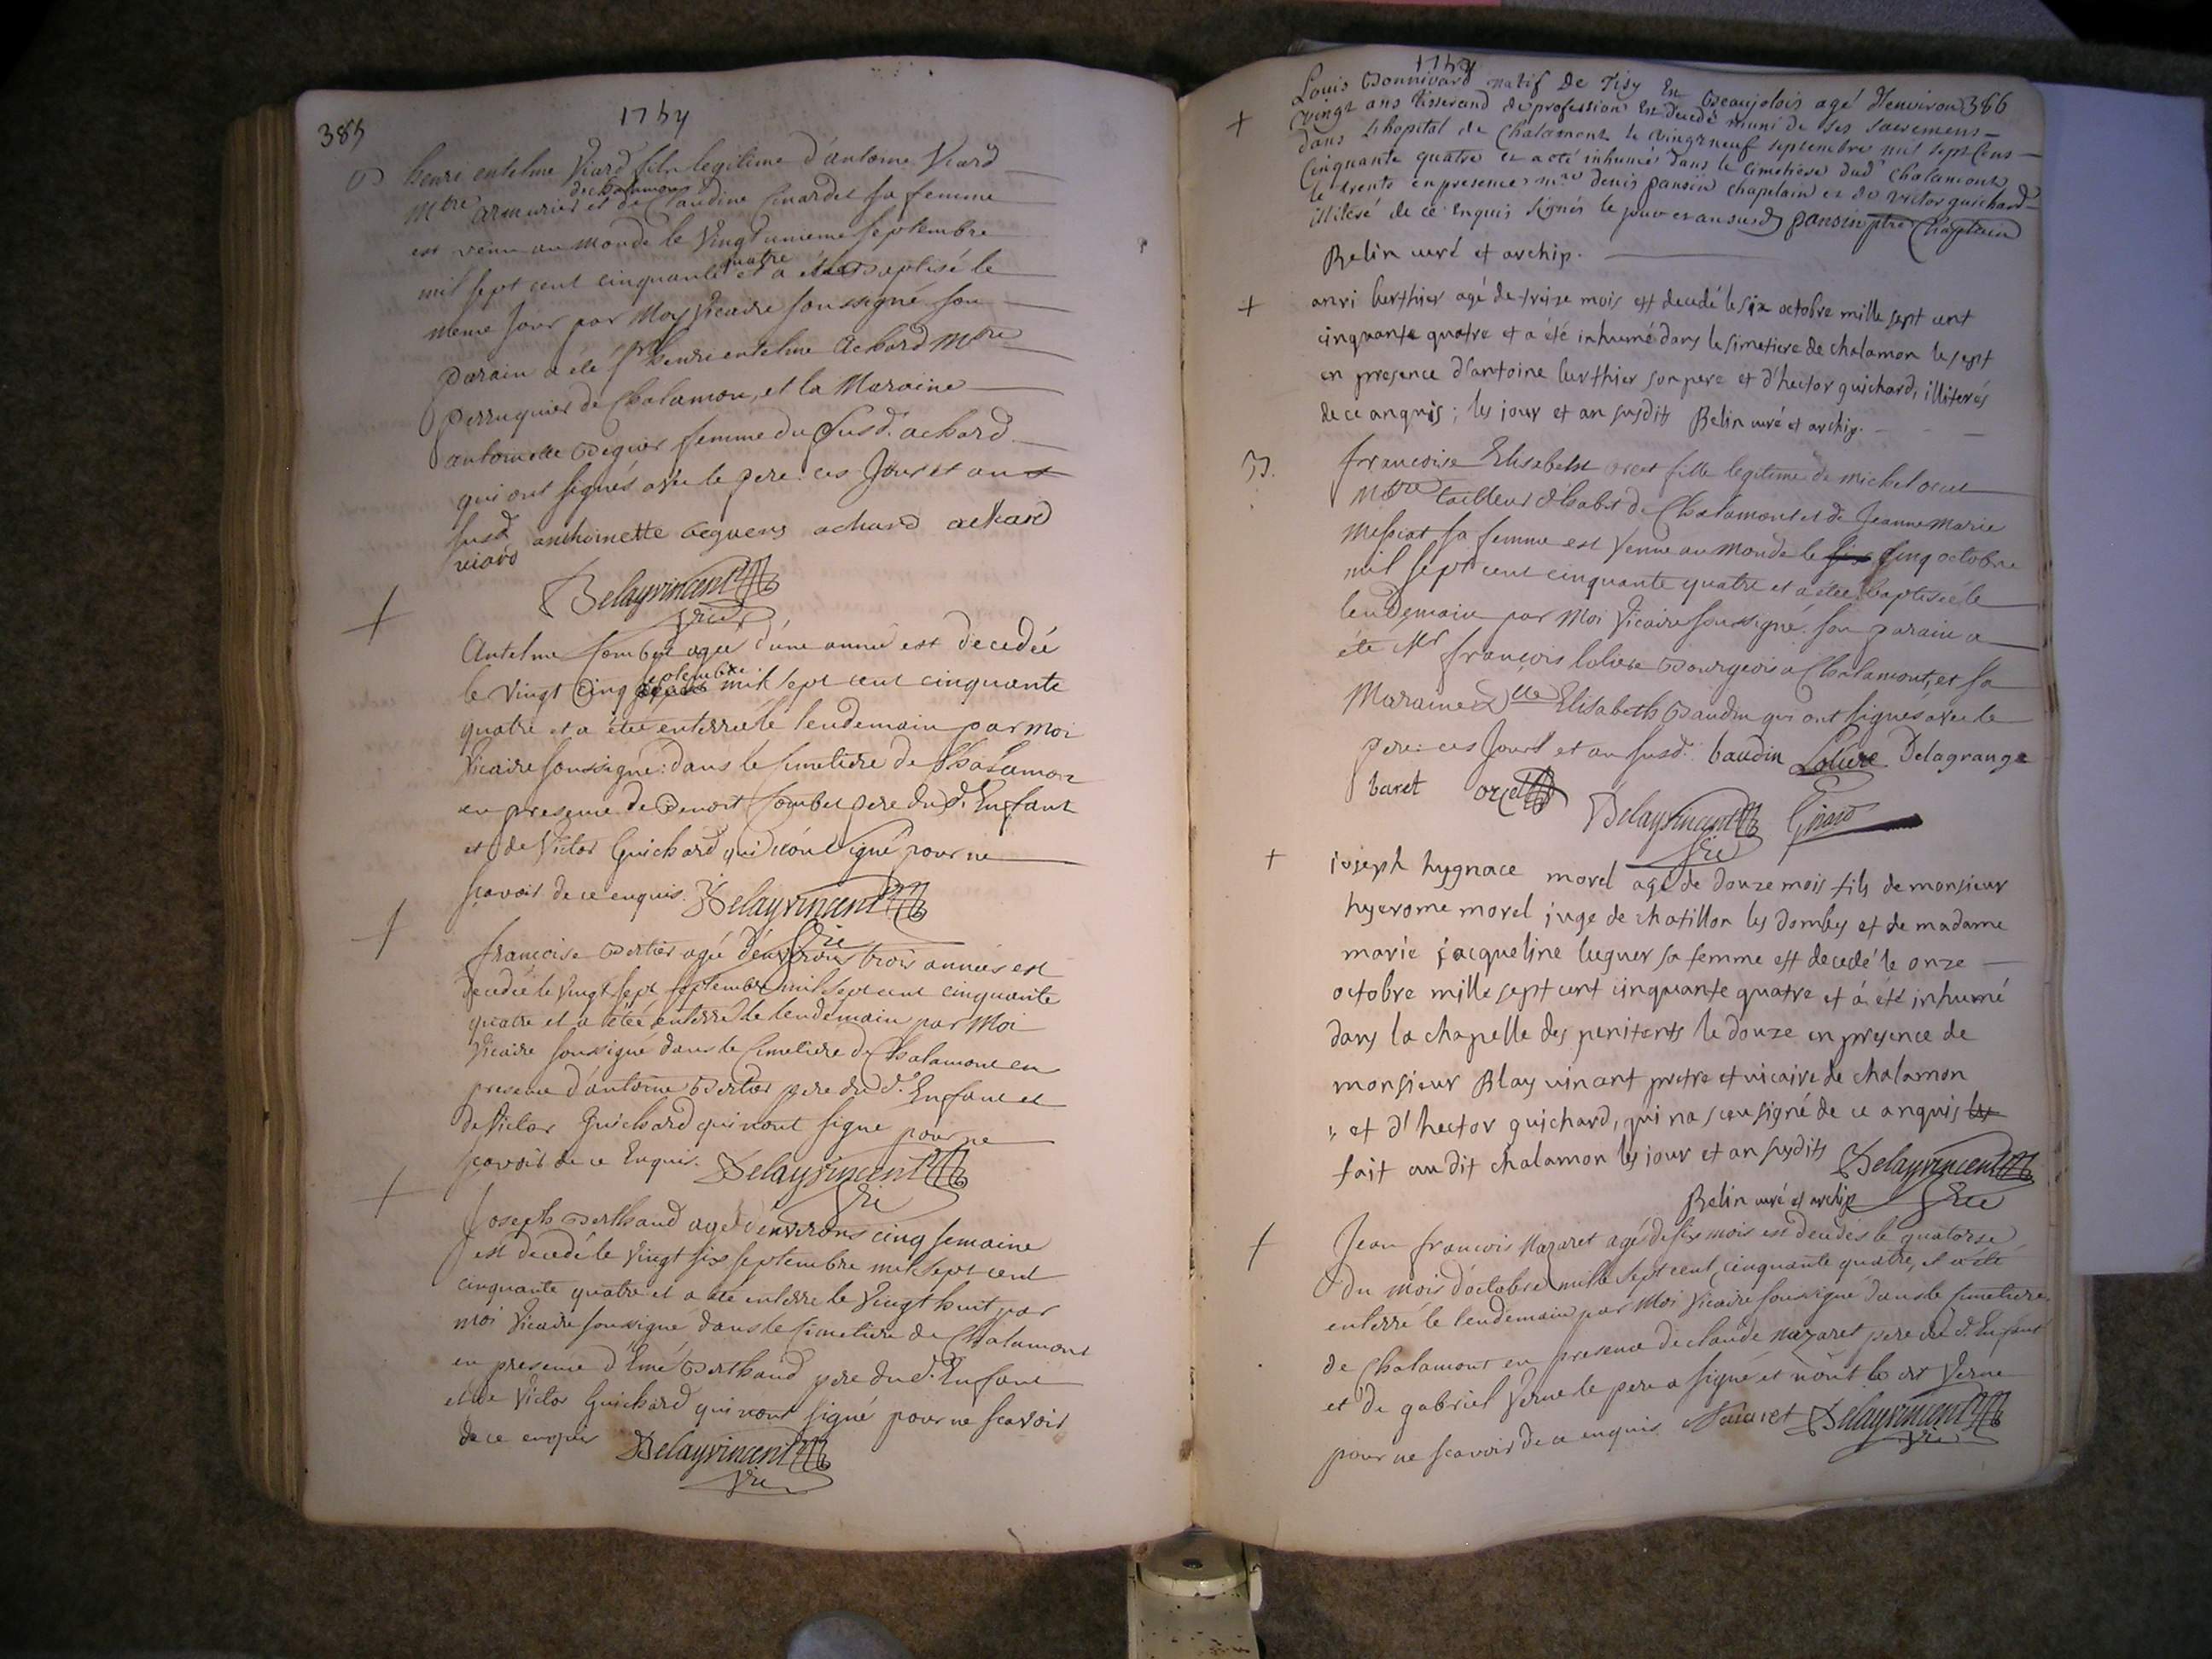 385
1754
henri entelme Viard fils legitime d'antoine Viard
de chalamont
Mtre armurier et de Claudine Conardet sa femme
est venu au monde le Vingt unieme septembre
quatre
mil sept cent cinquante et a été Baptisé le
meme jour par Moy Vicaire soussigné son
parain a été sr henri entelme Achard Mtre
perruquier de Chalamon, et la Maraine
antoinette Beguer femme du susd. achard
qui ont signés avec le pere: ces jour et an
susd. anthoinette beguers achard achard
viard
Belayvincent
vic
Antelme Combet agée d'une année est decedée
septembre
le vingt cinq mil sept cent cinquante
quatre et a étée enterrée le lendemain par moi
Vicaire soussigné: dans le cimetiere de Chalamon
en presence de Benoit Combet pere dud. Enfant
et de Victor Guichard qui n'ont signé pour ne
scavoir de ce enquis. Belayvincent
vic
françoise Bertier agée d'environs trois années est
decedée le Vingt sept septembre mil sept cent cinquante
quatre et a étée enterré le lendemain par Moi
Vicaire soussigné dans le Cimetiere de Chalamont en
presence d'antoine Bertier pere dud. Enfant et
de Victor Guichard qui n'ont signe pour ne
scavoir de ce Enquis. Belayvincent
vic
Joseph Berthaud agé d'environs cinq semaine
est decedé le Vingt six septembre mil sept cent
cinquante quatre et a été enterre le Vingt huit par
moi Vicaire soussigné dans le Cimetiere de Chalamont
en presence d'Emé Berthaud pere dud. Enfant
et de Victor Guichard qui n'ont signé pour ne scavoir
de ce enquis Belayvincent
vic
1754
366
Louis Bonnivard natif De Tisy En Beaujolois agé d'environ
vingt ans tisserand de profession Est decedé muni de ses sacremens
dans L'hopital de Chalamont le vingt neuf septembre mil sept Cens
Cinquante quatre et a eté inhumé dans le Cimetiere dud Chalamont
le trente en presence mre denis pansin chapelain et de victor guichard
illiteré de ce Enquis signés le jour et an susd pansin ptre Chaplain
Belin curé et archip.
anri berthier agé de treize mois est decedé le six octobre mille sept cent
cinquante quatre et a été inhumé dans le simetiere de chalamon le sept
en presence d'antoine berthier son pere et d'hector guichard, illiterés
de ce anquis; les jour et an susdits Belin curé et archip.
françoise Elisabeth orcet fille legitime de michel orcet
Mtre tailleur d'habit de Chalamont et de Jeanne Marie
Messiat sa femme est Venue au monde le Cinq octobre
mil sept cent cinquante quatre et a étée baptisée le
lendemain par Moi Vicaire soussigné. son parain a
été Mr françois loliere Bourgeois a Chalamont, et sa
Maraine Dlle Elisabeth Baudin qui ont signés avec le
pere: ces Jours et an susd. baudin Loliere Delagrange
baret orcet
Belayvincent Girard
vic
joseph hygnace morel agé de douze mois fils de monsieur
hyerome morel juge de chatillon les dombes et de madame
marie jacqueline beguer sa femme est decedé le onze
octobre mille sept cent cinquante quatre et à été inhumé
dans la chapelle des penitents le douze en presence de
monsieur Blay vincent pretre et vicaire de chalamon
et d'hector guichard, qui na sceu signé de ce anquis
fait au dit chalamon les jour et an susdits Belayvincent
Belin curé et archip vic
Jean françois Nazaret agé de six mois est decedés le quatorse
du mois d'octobre mille sept cent cinquante quatre, et a été
enterré le lendemain par Moi Vicaire soussigné dans le cimetiere
de Chalamont en presence de claude nazaret pere dud. Enfant
et de gabriel Verne le pere a signé et non led. Verne
pour ne scavoir de ce enquis Nazaret Belayvincent
vic